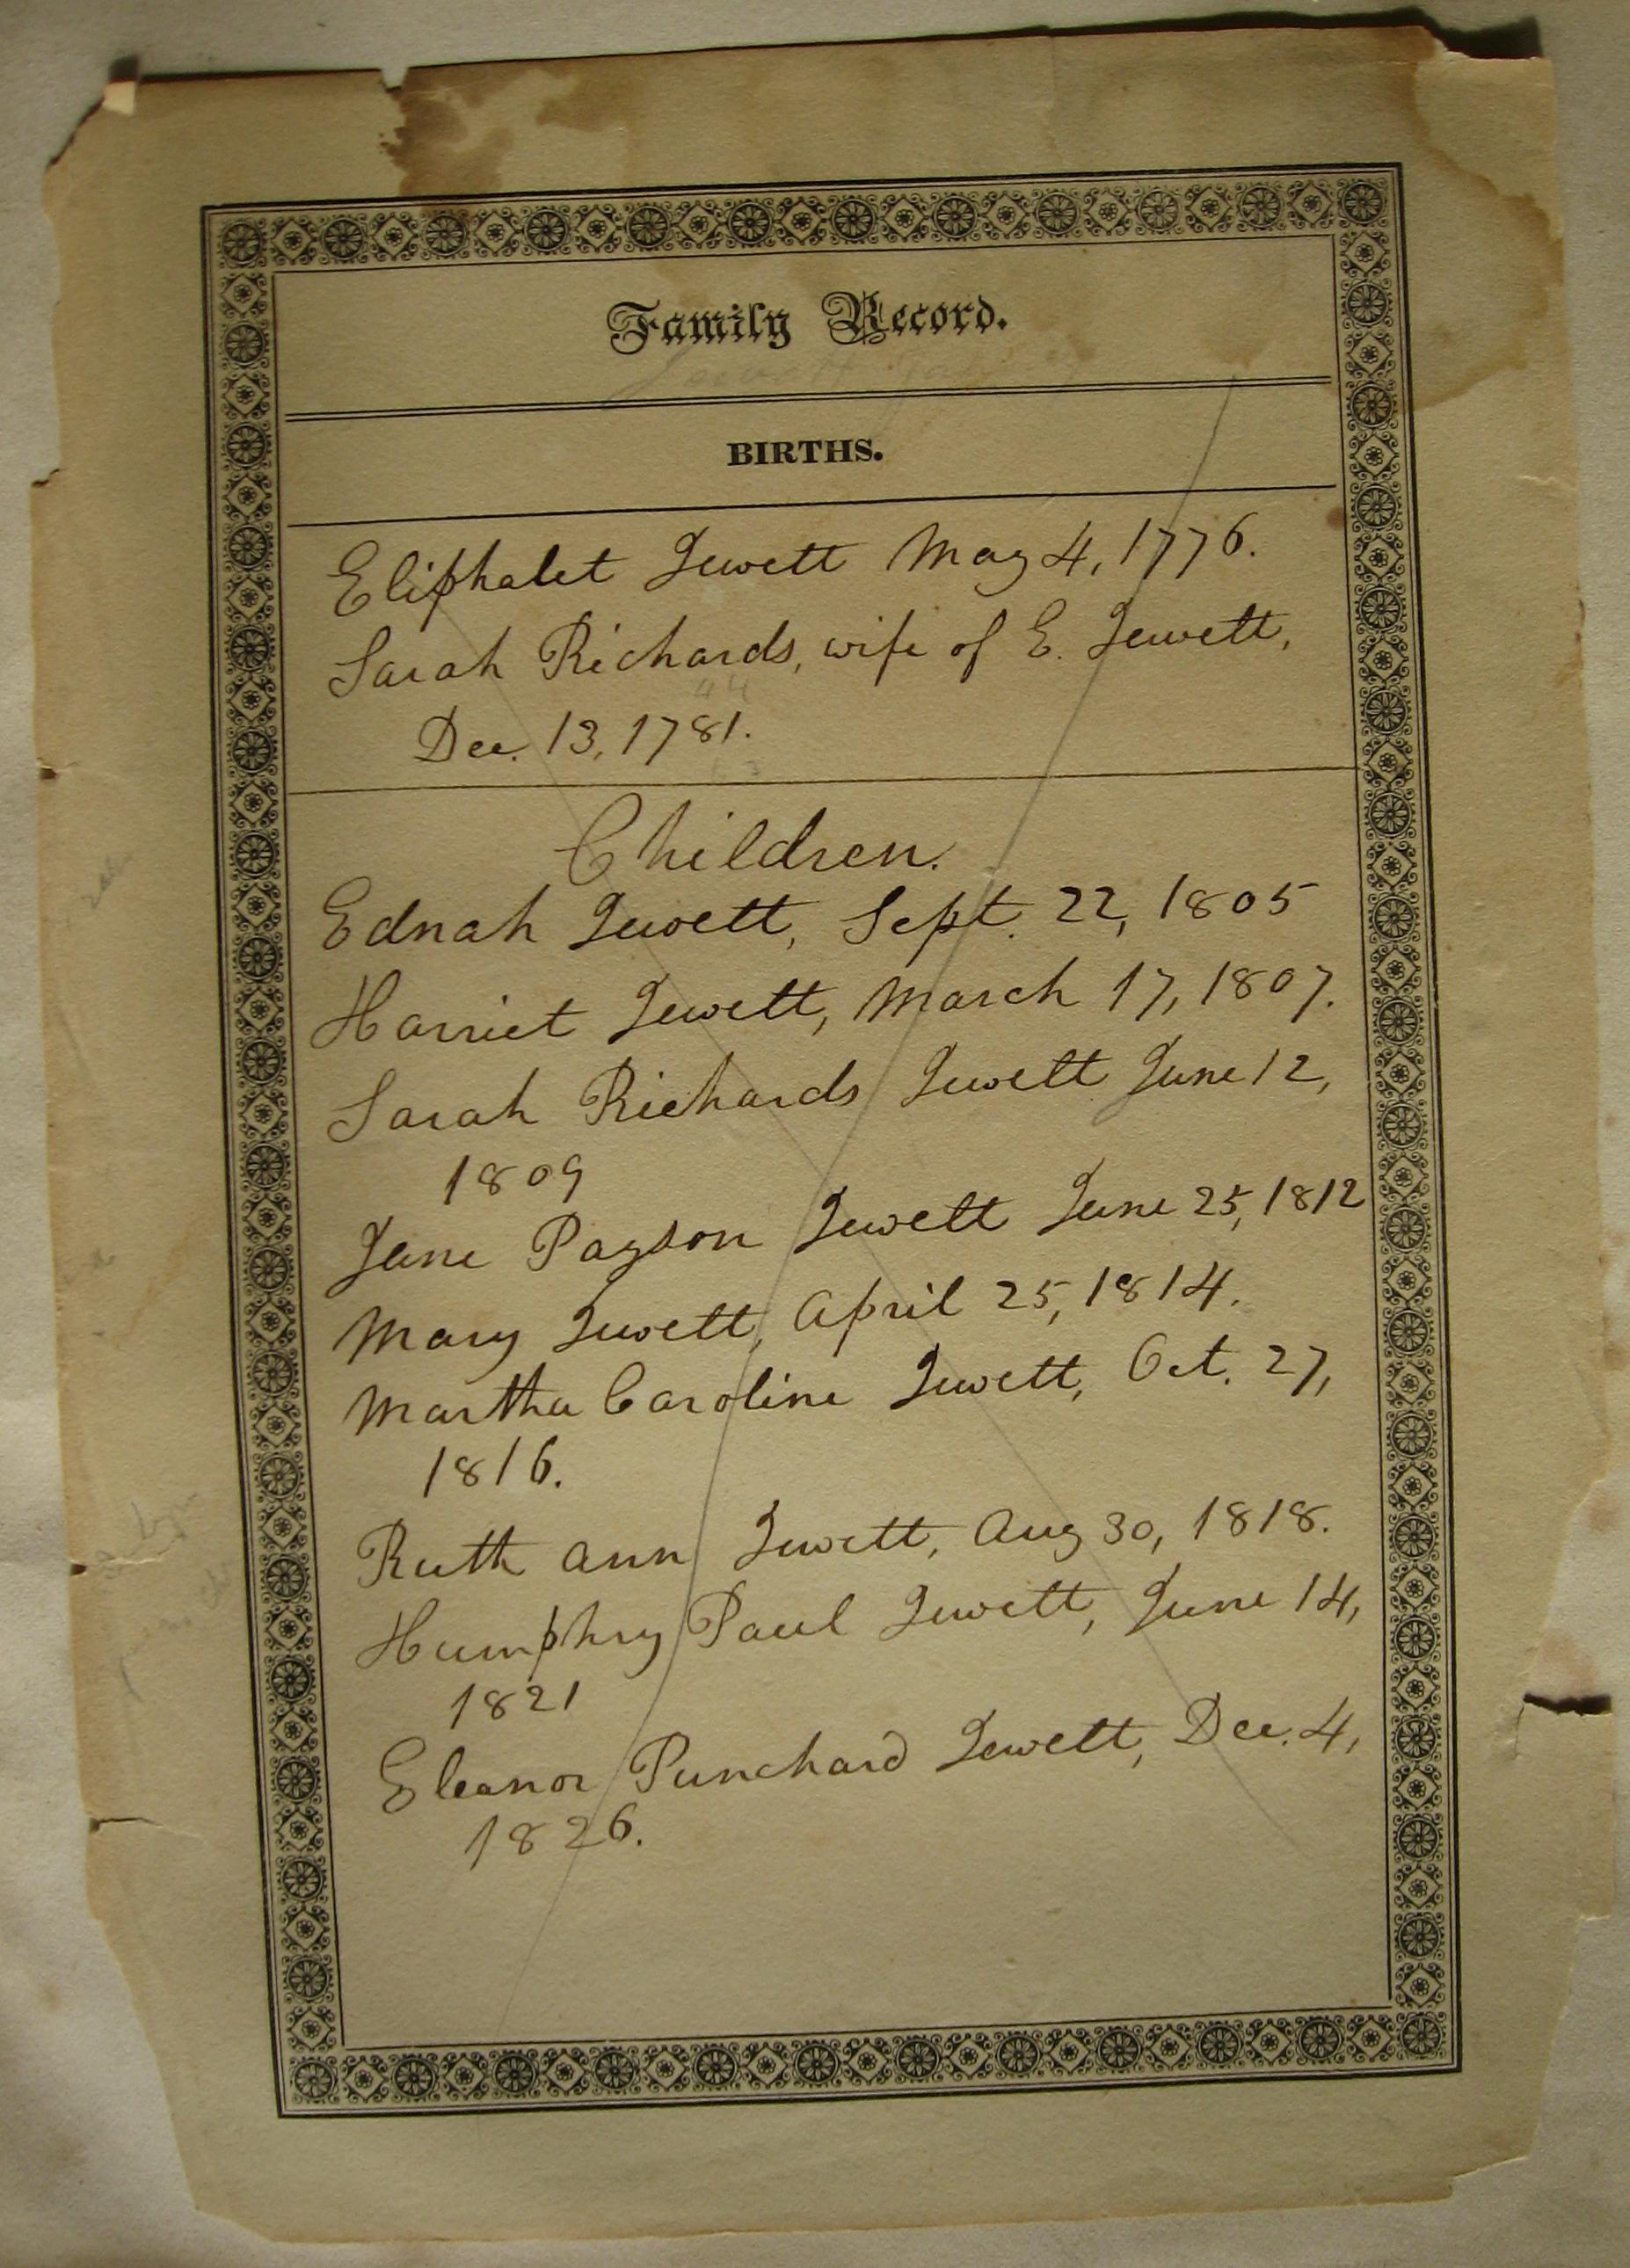 Family Record.
BIRTHS.
Eliphalet Jewett May 4, 1776.
Sarah Richards, wife of E. Jewett,
Dec. 13, 1781.
Children.
Ednah Jewett, Sept. 22, 1805
Harriet Jewett, March 17, 1807.
Sarah Richards Jewett June 12,
1809
Jane Payson Jewett June 25, 1812
Mary Jewett, April 25, 1814.
Martha Caroline Jewett, Oct. 27,
1816.
Ruth Ann Jewett, Aug 30, 1818.
Humphry Paul Jewett, June 14,
1821
Eleanor Punchard Jewett, Dec. 4,
1826.